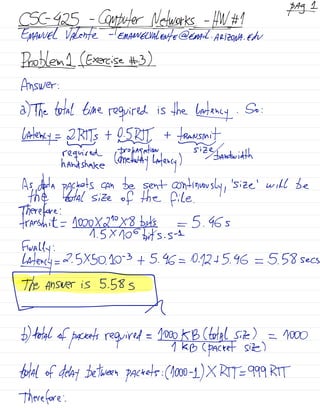 pag 1
CSC-425 - Computer Networks - HW#1
EMANUEL VALENTE - EMANUELVALENTE@EMAIL.ARIZONA.EDU
Problem 1 (Exercise #3)
Answer:
a) The total time required is the latency. So:
Latency = 2RTTs + 0.5RTT + transmit
required handshake propagation (one way latency) size/bandwidth
As data packets can be sent continuously, 'size' will be
the total size of the file.
Therefore:
transmit = 1000 X 2^10 X 8 bits / 1.5 X 10^6 bits.s^-1 = 5.46 s
Finally:
Latency = 2.5X50.10^-3 + 5.46 = 0.12+5.46 = 5.58 secs
The answer is 5.58 s
b) total of packets required = 1000 KB (total size) / 1 KB (packet size) = 1000
total of delay between packets: (1000-1) X RTT = 999 RTT
Therefore: